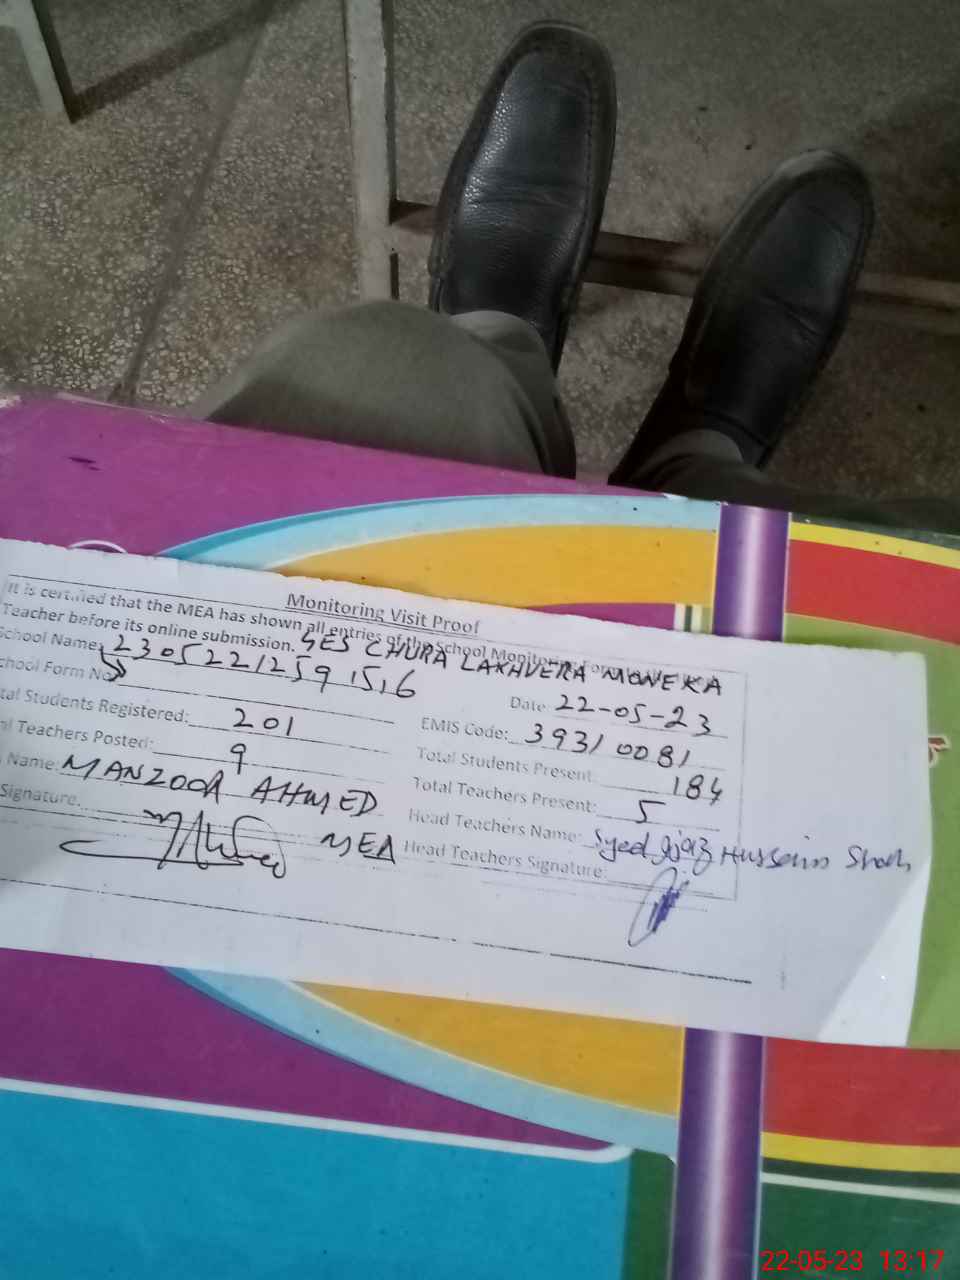 Monitoring Visit Proof
It is certified that the MEA has shown all entries of the School Monitoring Form to the
Teacher before its online submission.
School Name: GES CHURA LAKHVERA MONEKA
School Form No 23052212591516 Date 22-05-23
tal Students Registered: 201 EMIS Code: 39310081
al Teachers Posted: 9 Total Students Present: 184
Name: MANZOOR AHMED Total Teachers Present: 5
Signature. MEA Head Teachers Name: Syed Ijaz Hussain Shah
Head Teachers Signature:
22-05-23 13:17